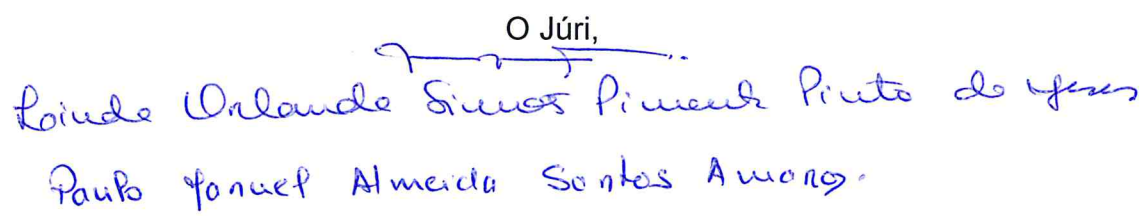 O Júri,
Orlanda Simões Pimenta Pinto de
Paulo Manuel Almeida Santos Amaro.